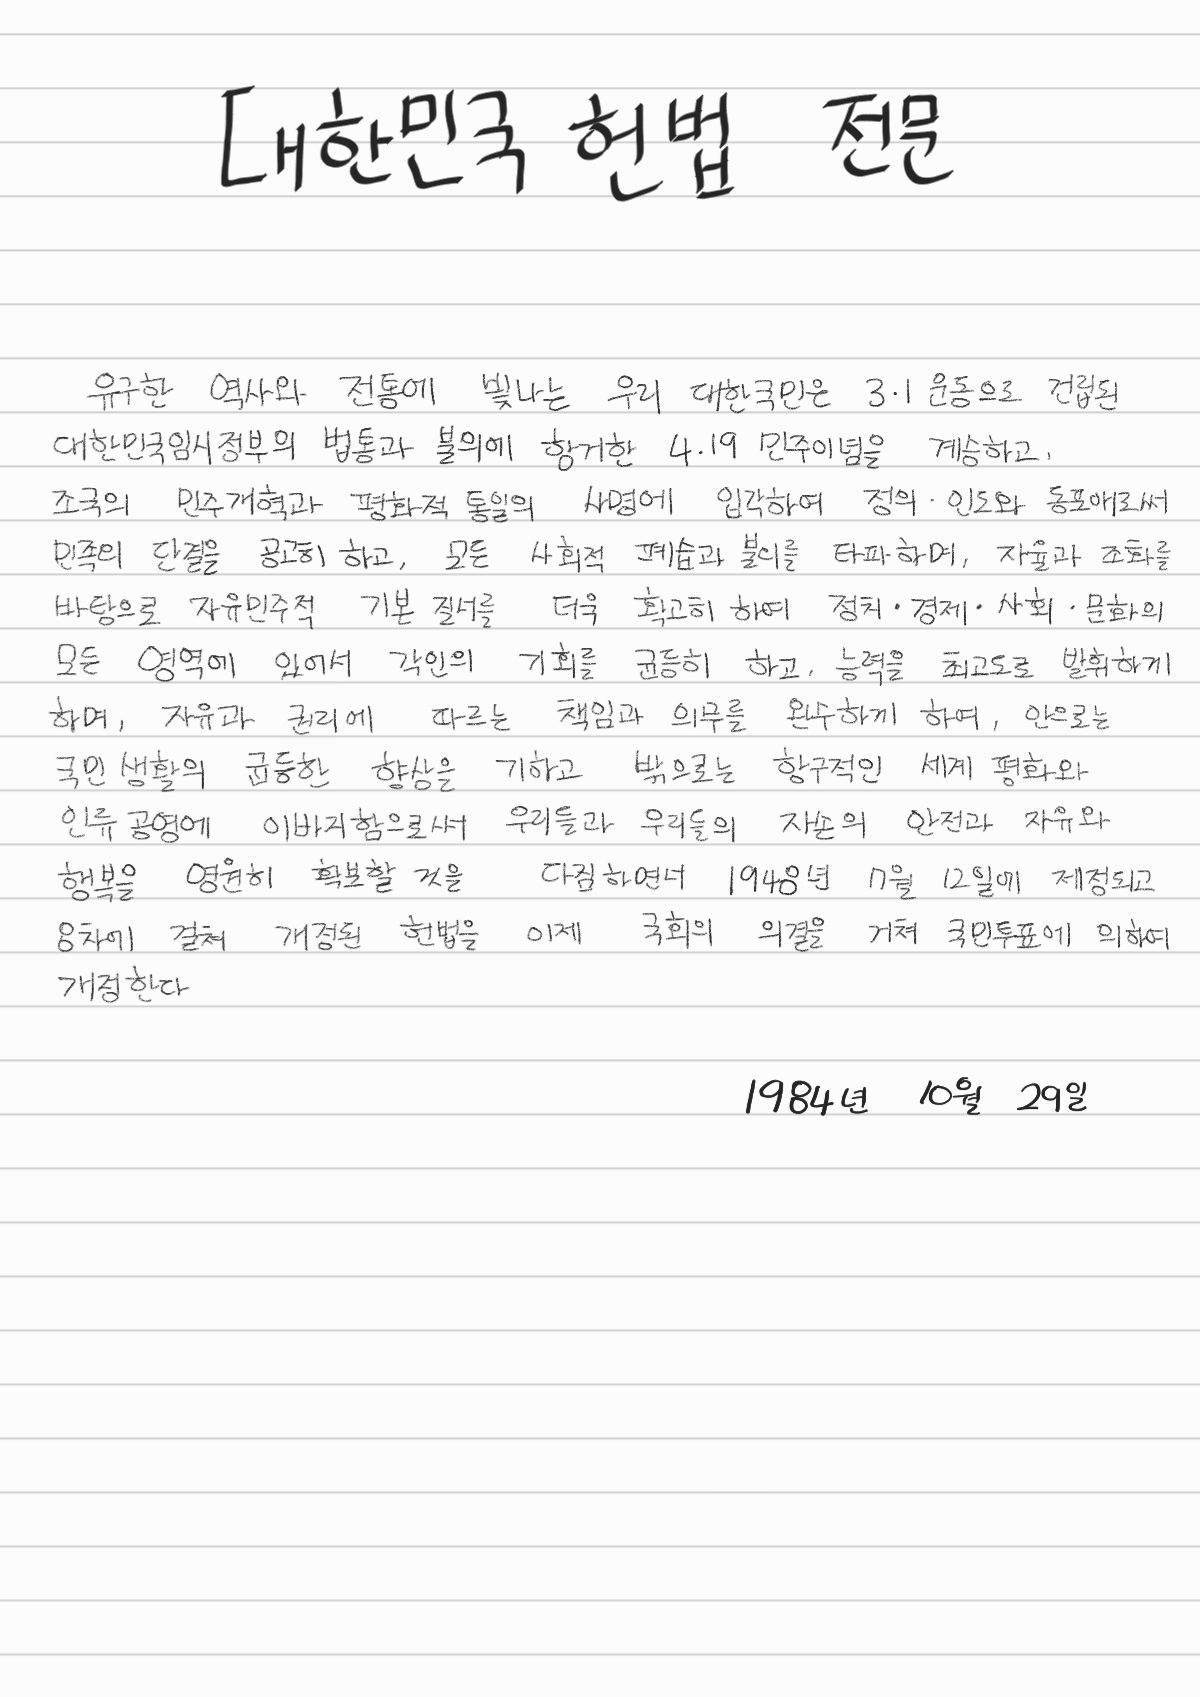 대한민국 헌법 전문
유구한 역사와 전통에 빛나는 우리 대한국민은 3·1 운동으로 건립된
대한민국임시정부의 법통과 불의에 항거한 4.19 민주이념을 계승하고,
조국의 민주개혁과 평화적 통일의 사명에 입각하여 정의·인도와 동포애로써
민족의 단결을 공고히 하고, 모든 사회적 폐습과 불의를 타파하며, 자율과 조화를
바탕으로 자유민주적 기본 질서를 더욱 확고히 하여 정치·경제·사회·문화의
모든 영역에 있어서 각인의 기회를 균등히 하고, 능력을 최고도로 발휘하게
하며, 자유과 권리에 따르는 책임과 의무를 완수하게 하여, 안으로는
국민생활의 균등한 향상을 기하고 밖으로는 항구적인 세계 평화와
인류공영에 이바지함으로써 우리들과 우리들의 자손의 안전과 자유와
행복을 영원히 확보할 것을 다짐하면서 1948년 7월 12일에 제정되고
8차에 걸쳐 개정된 헌법을 이제 국회의 의결을 거쳐 국민투표에 의하여
개정한다
1984년 10월 29일